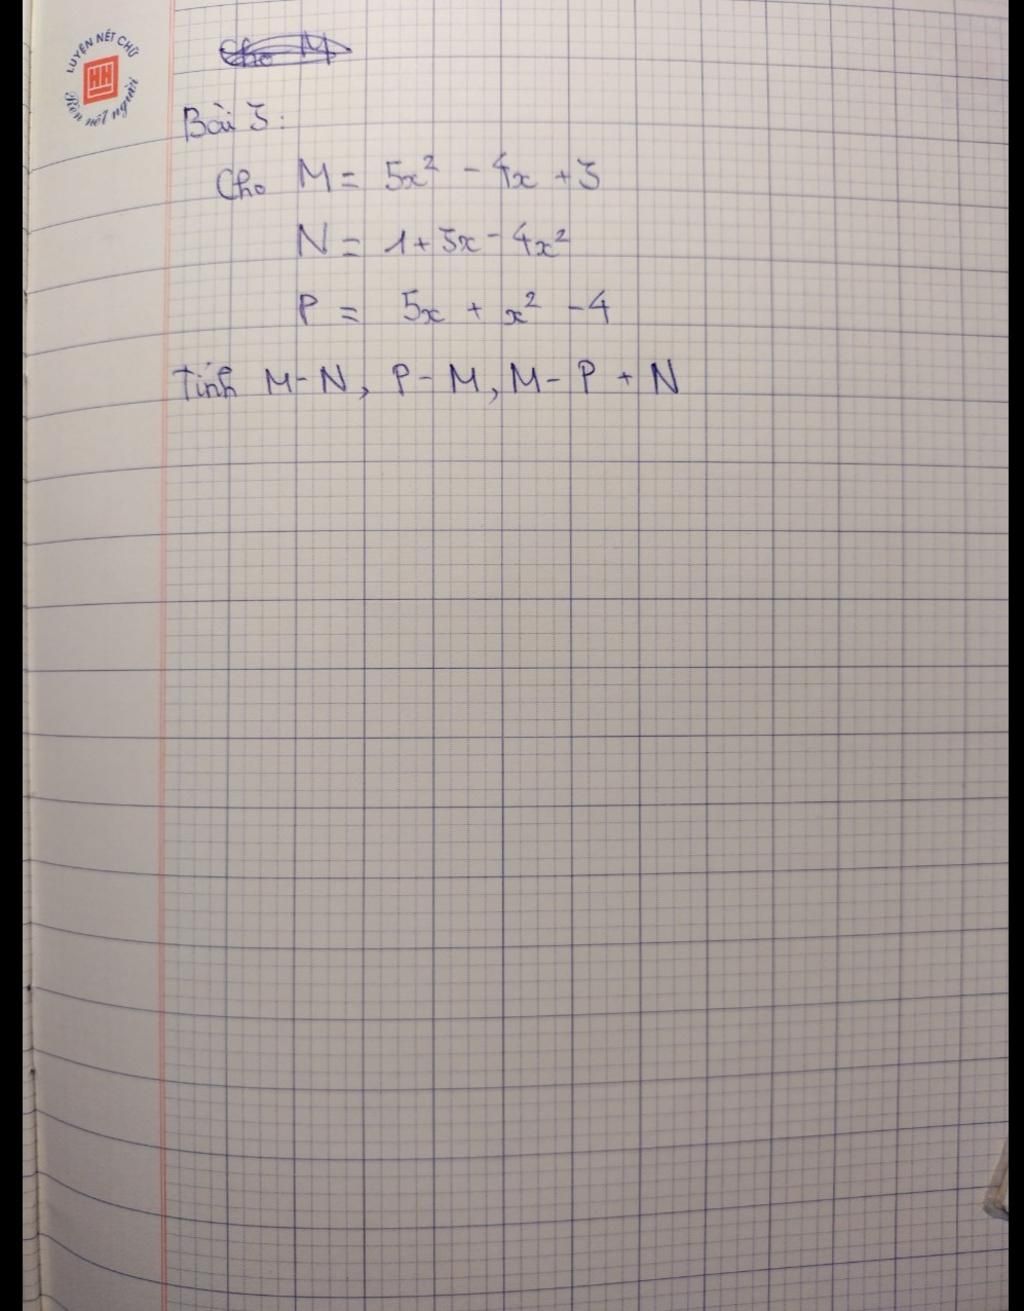 LUYỆN NÉT CHỮ
HH
Rèn nết người
Bài 3:
Cho M = 5x² - 4x + 3
N = 1 + 3x - 4x²
P = 5x + x² - 4
Tính M - N, P - M, M - P + N